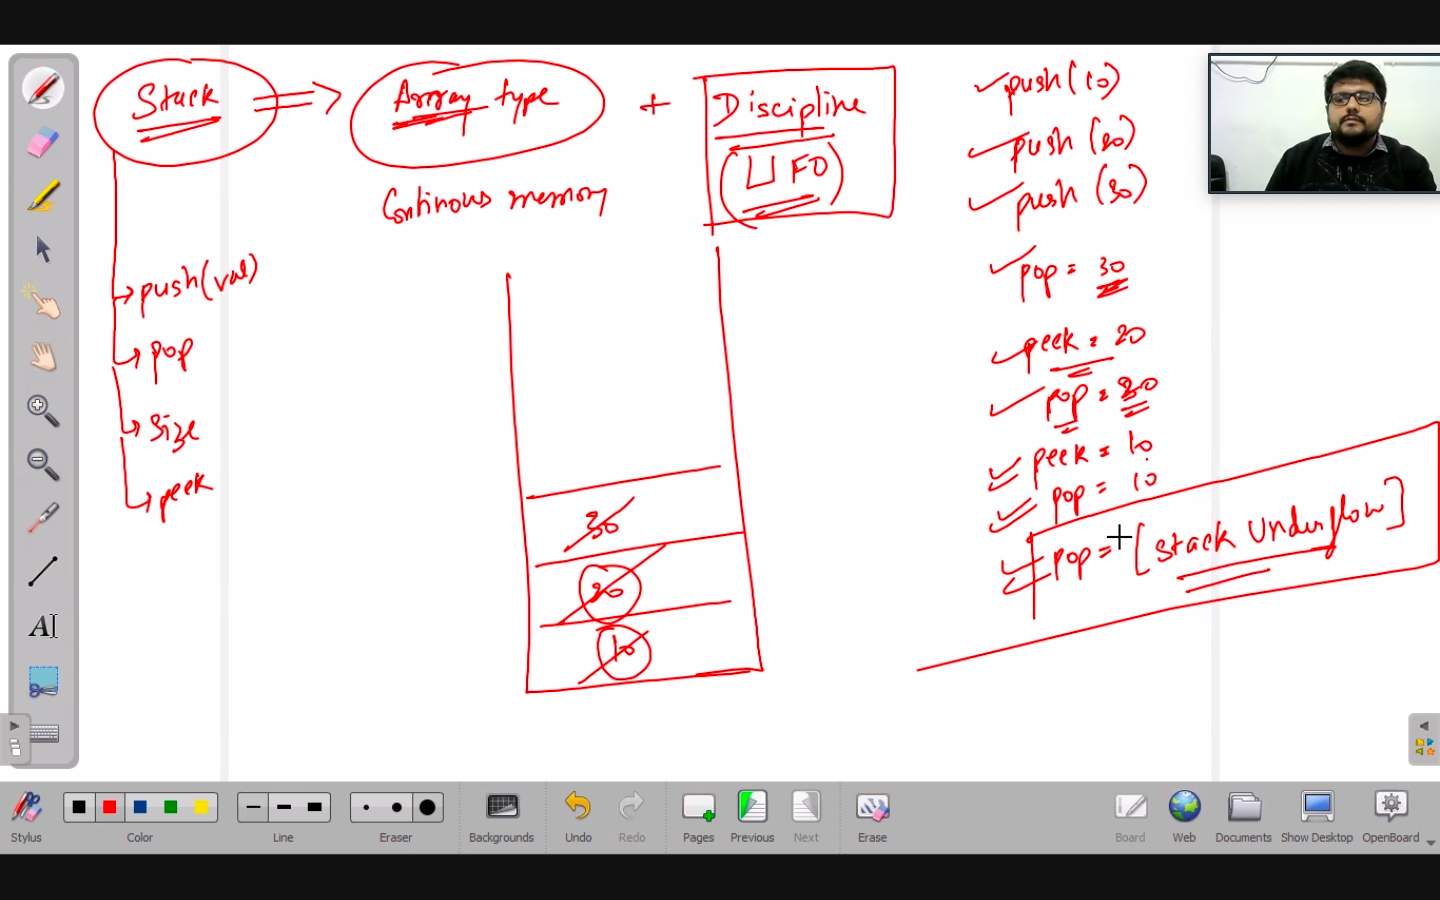 Stack => Array type + Discipline
(LIFO)
Continous memory
push(val)
pop
size
peek
30
20
10
push(10)
push(20)
push(30)
pop = 30
peek = 20
pop = 20
peek = 10
pop = 10
pop = [Stack Underflow]
A
Stylus
Color
Line
Eraser
Backgrounds
Undo
Redo
Pages
Previous
Next
Erase
Board
Web
Documents
Show Desktop
OpenBoard